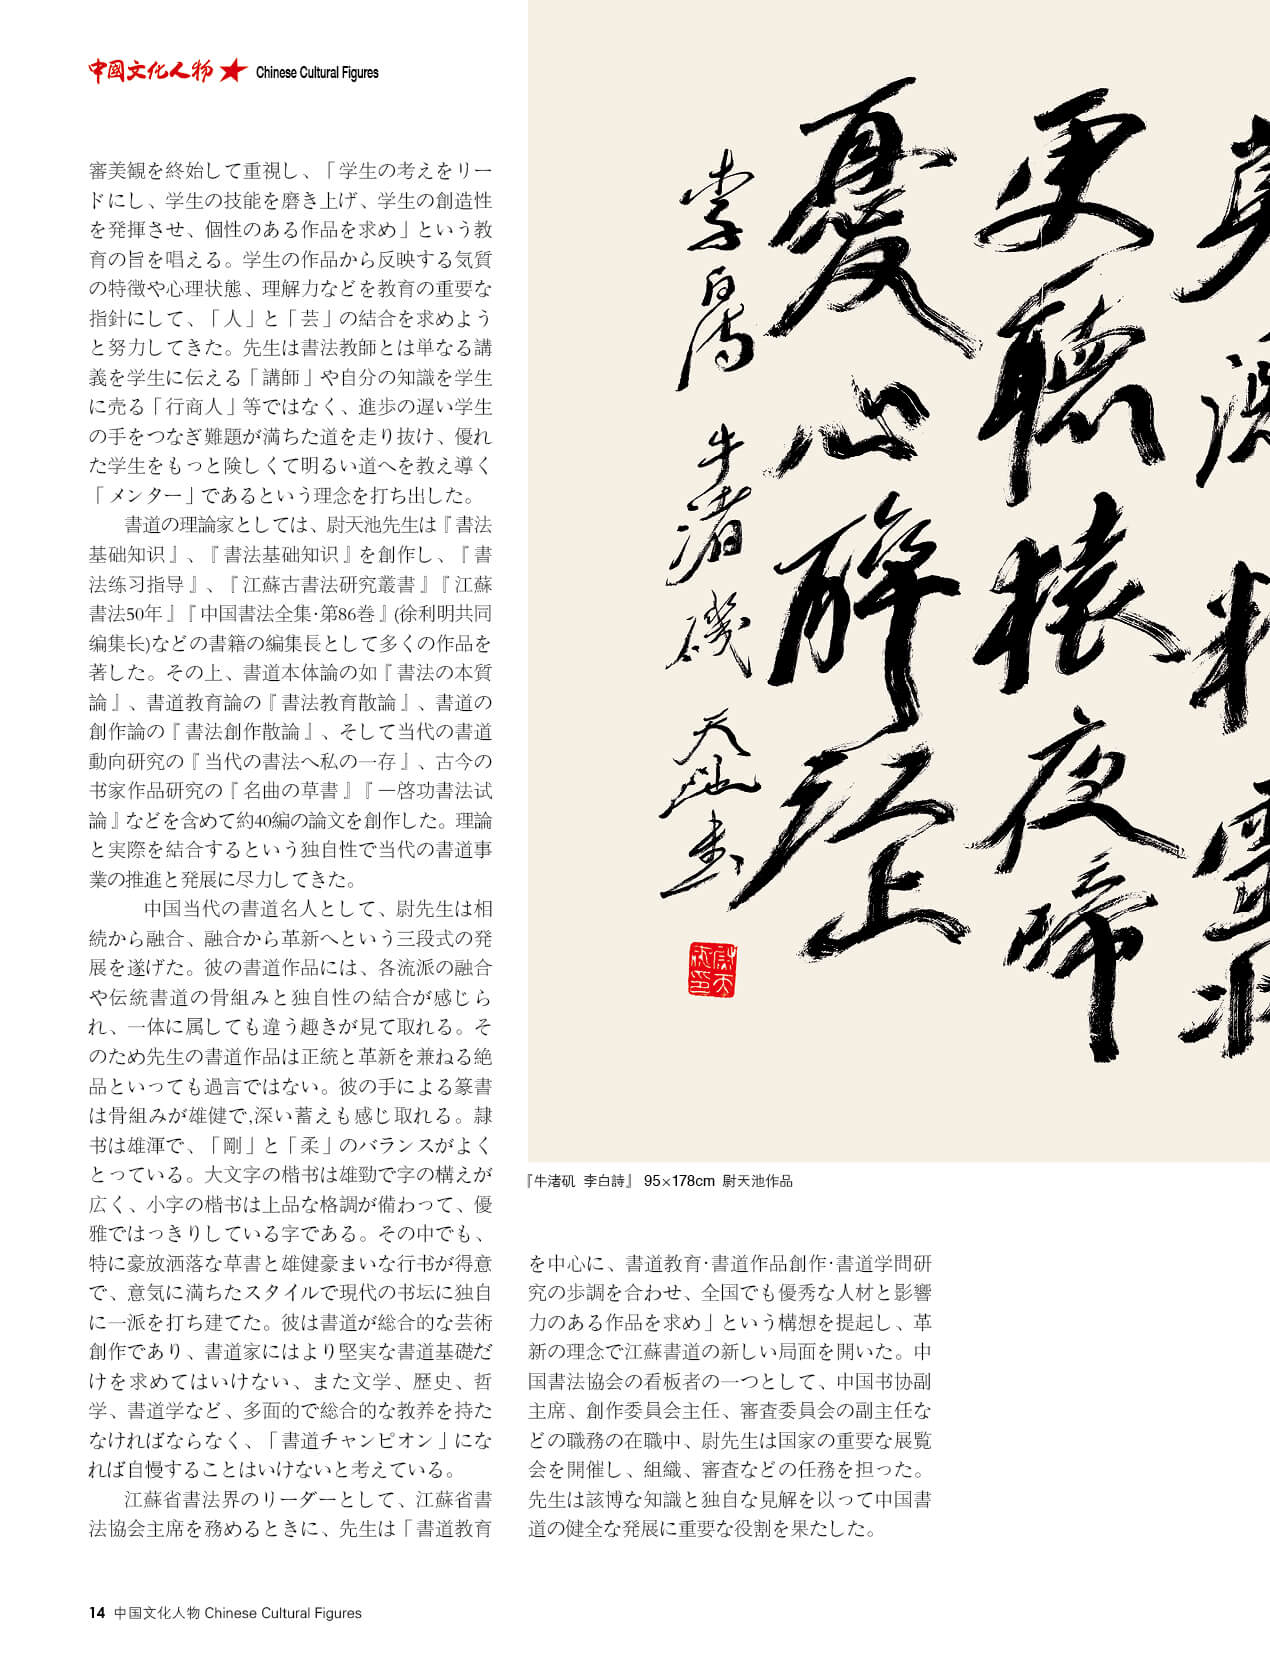 中國文化人物 Chinese Cultural Figures
審美観を終始して重視し、「学生の考えをリー
ドにし、学生の技能を磨き上げ、学生の創造性
を発揮させ、個性のある作品を求め」という教
育の旨を唱える。学生の作品から反映する気質
の特徴や心理状態、理解力などを教育の重要な
指針にして、「人」と「芸」の結合を求めよう
と努力してきた。先生は書法教師とは単なる講
義を学生に伝える「講師」や自分の知識を学生
に売る「行商人」等ではなく、進歩の遅い学生
の手をつなぎ難題が満ちた道を走り抜け、優れ
た学生をもっと険しくて明るい道へを教え導く
「メンター」であるという理念を打ち出した。
書道の理論家としては、尉天池先生は『書法
基础知识』、『書法基础知识』を創作し、『書
法练习指导』、『江蘇古書法研究叢書』『江蘇
書法50年』『中国書法全集·第86巻』(徐利明共同
编集长)などの書籍の編集長として多くの作品を
著した。その上、書道本体論の如『書法の本質
論』、書道教育論の『書法教育散論』、書道の
創作論の『書法創作散論』、そして当代の書道
動向研究の『当代の書法へ私の一存』、古今の
书家作品研究の『名曲の草書』『一啓功書法试
論』などを含めて約40編の論文を創作した。理論
と実際を結合するという独自性で当代の書道事
業の推進と発展に尽力してきた。
中国当代の書道名人として、尉先生は相
続から融合、融合から革新へという三段式の発
展を遂げた。彼の書道作品には、各流派の融合
や伝統書道の骨組みと独自性の結合が感じら
れ、一体に属しても違う趣きが見て取れる。そ
のため先生の書道作品は正統と革新を兼ねる絶
品といっても過言ではない。彼の手による篆書
は骨組みが雄健で,深い蓄えも感じ取れる。隷
书は雄渾で、「剛」と「柔」のバランスがよく
とっている。大文字の楷书は雄勁で字の構えが
広く、小字の楷书は上品な格調が備わって、優
雅ではっきりしている字である。その中でも、
特に豪放洒落な草書と雄健豪まいな行书が得意
で、意気に満ちたスタイルで現代の书坛に独自
に一派を打ち建てた。彼は書道が総合的な芸術
創作であり、書道家にはより堅実な書道基礎だ
けを求めてはいけない、また文学、歴史、哲
学、書道学など、多面的で総合的な教养を持た
なければならなく、「書道チャンピオン」にな
れば自慢することはいけないと考えている。
江蘇省書法界のリーダーとして、江蘇省書
法協会主席を務めるときに、先生は「書道教育
更聽猿夜啼
憂心醉江上
李白詩 牛渚磯 天池書
『牛渚矶 李白詩』 95×178cm 尉天池作品
を中心に、書道教育·書道作品創作·書道学問研
究の歩調を合わせ、全国でも優秀な人材と影響
力のある作品を求め」という構想を提起し、革
新の理念で江蘇書道の新しい局面を開いた。中
国書法協会の看板者の一つとして、中国书协副
主席、創作委員会主任、審査委員会の副主任な
どの職務の在職中、尉先生は国家の重要な展覧
会を開催し、組織、審査などの任務を担った。
先生は該博な知識と独自な見解を以って中国書
道の健全な発展に重要な役割を果たした。
14 中国文化人物 Chinese Cultural Figures